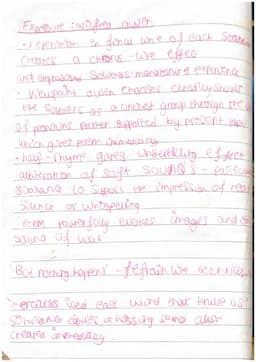 Exposure : wilfred owen
• repetition in final line of each stanza
creates a chorus-like effec
and emphasises soldiers monotonous experience
• viewpoint owen chooses clearly shows
the soldiers as a united group through the
of pronouns further supported by present ten
which gives poem immediacy
• half-rhyme gives unsettling effect
alliteration of soft sounds -
to support the impression of near
silence or whispering
Poem powerfully evokes images and
sound of war
But nothing happens - refrain like
merciless iced east wind that knive us
sibilance a hissing sound also
creates immediacy.